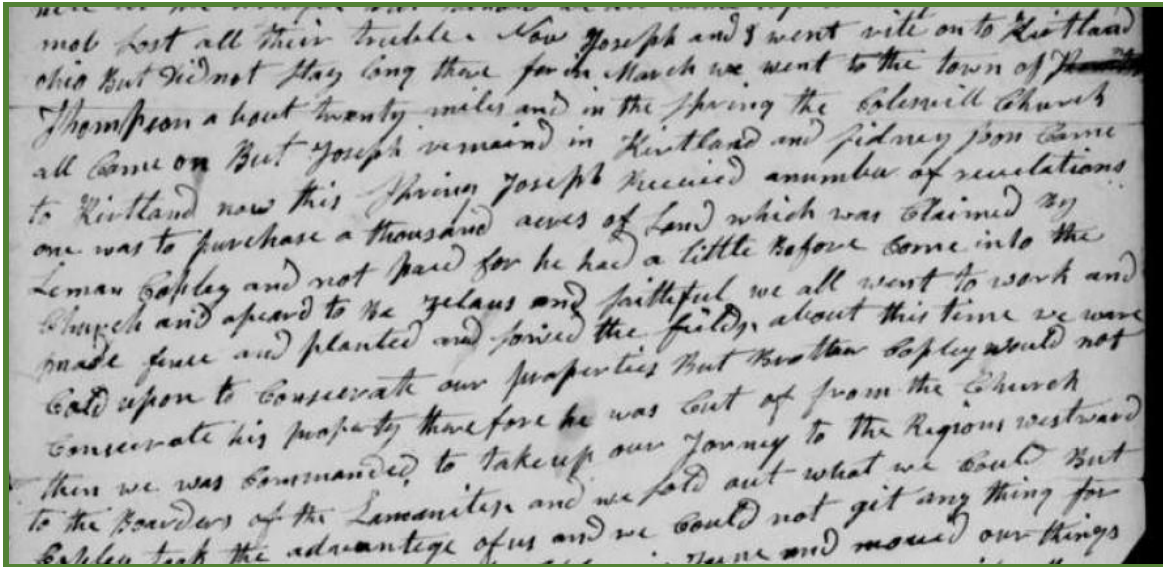 mob lost all their truble. Now Joseph and I went rite on to Kirtland
ohio But Did not stay long there for in March we went to the town of
Thompson a bout twenty miles and in the spring the Coleswill Church
all Came on But Joseph remaind in Kirtland and sidney soon Came
to Kirtland now this spring Joseph Received anumber of revelations
one was to purchase a thousand acres of Land which was Claimed By
Leman Copley and not paid for he had a little Before Come into the
Church and apeard to Be zelaus and faithful we all went to work and
made fence and planted and sowed the fields. about this time we were
Cald upon to Consecrate our properties But Brother Copley would not
Consecrate his property therefore he was Cut of from the Church
then we was Commanded to take up our Jorney to the Regions westward
to the Boarders of the Lamanites. and we sold out what we Could But
Copley took the advantege of us and we Could not git any thing for
June and moved our things